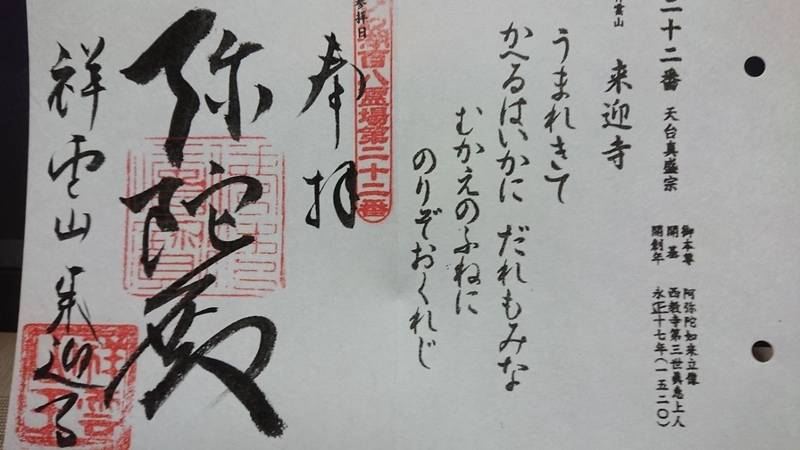 二十二番 天台真盛宗
雲山 来迎寺
御本尊 阿弥陀如来立像
開基 西教寺第三世真恵上人
開創年 永正十七年(一五二〇)
うまれきて
かへるはいかに だれもみな
むかえのふねに
のりぞおくれじ
参拝日
百八霊場第二十二番
奉拝
弥陀尊
祥雲山 来迎寺